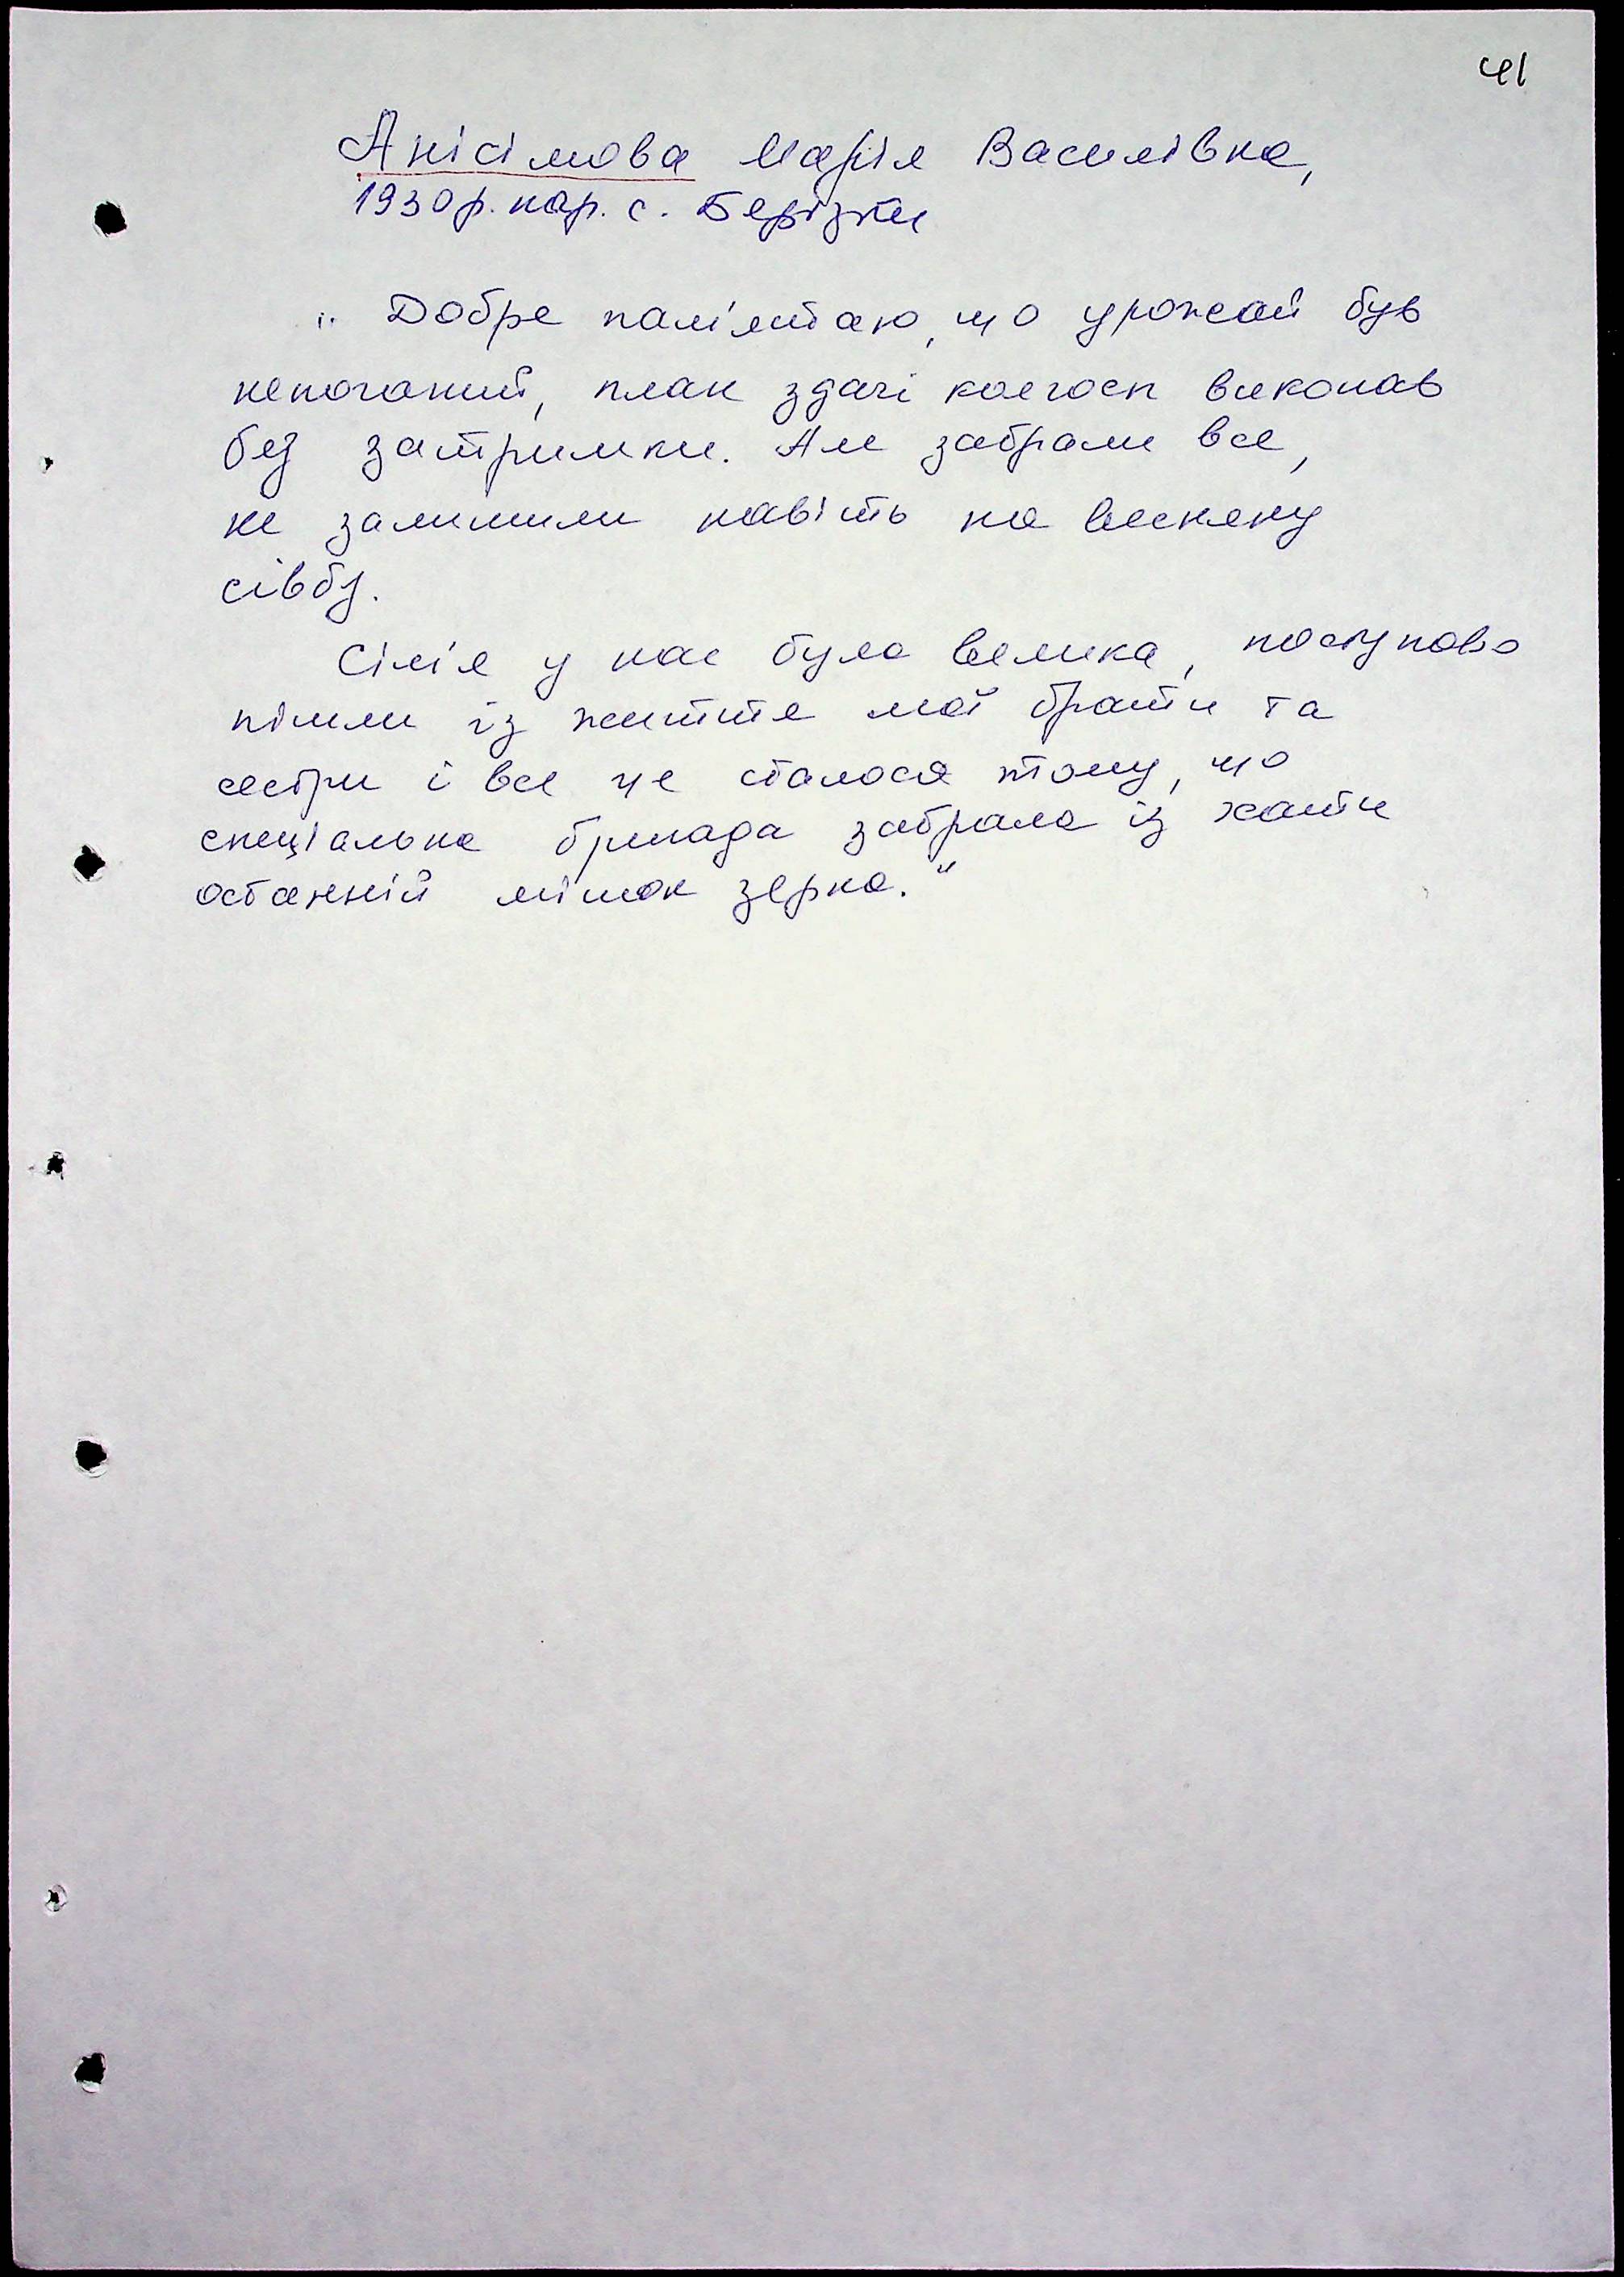 41
Анісімова Марія Василівна,
1930 р. нар. с. Берізки
„ Добре пам'ятаю, що урожай був
непоганий, план здачі колгосп виконав
без затримки. Але забрали все,
не залишили навіть на весняну
сівбу.
Сім'я у нас була велика, поступово
пішли із життя мої брати та
сестри і все це сталося тому, що
спеціальна бригада забрала із хати
останній мішок зерна."